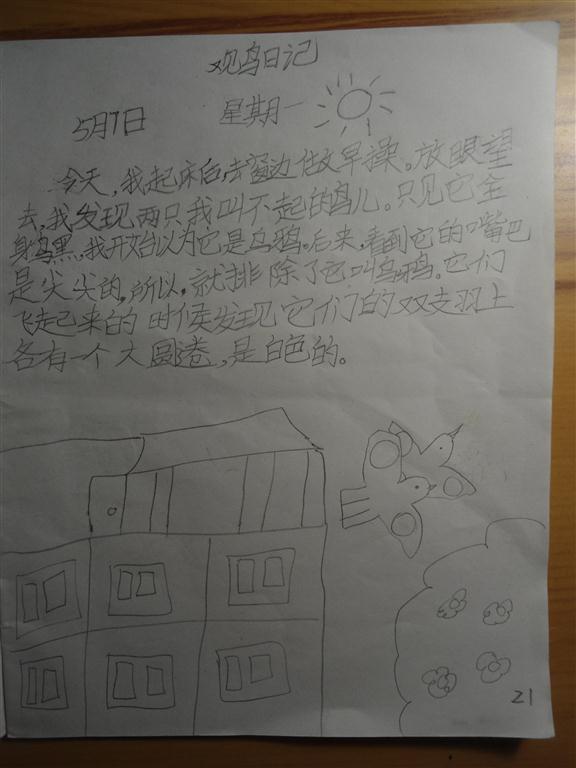 观鸟日记
5月7日 星期一
今天,我起床后,去窗边做早操。放眼望
去,我发现两只我叫不起的鸟儿。只见它全
身乌黑,我开始以为它是乌鸦。后来,看到它的嘴巴
是尖尖的,所以,就排除了它叫乌鸦。它们
飞起来的时候发现它们的双支羽上
各有一个大圆卷,是白色的。
21